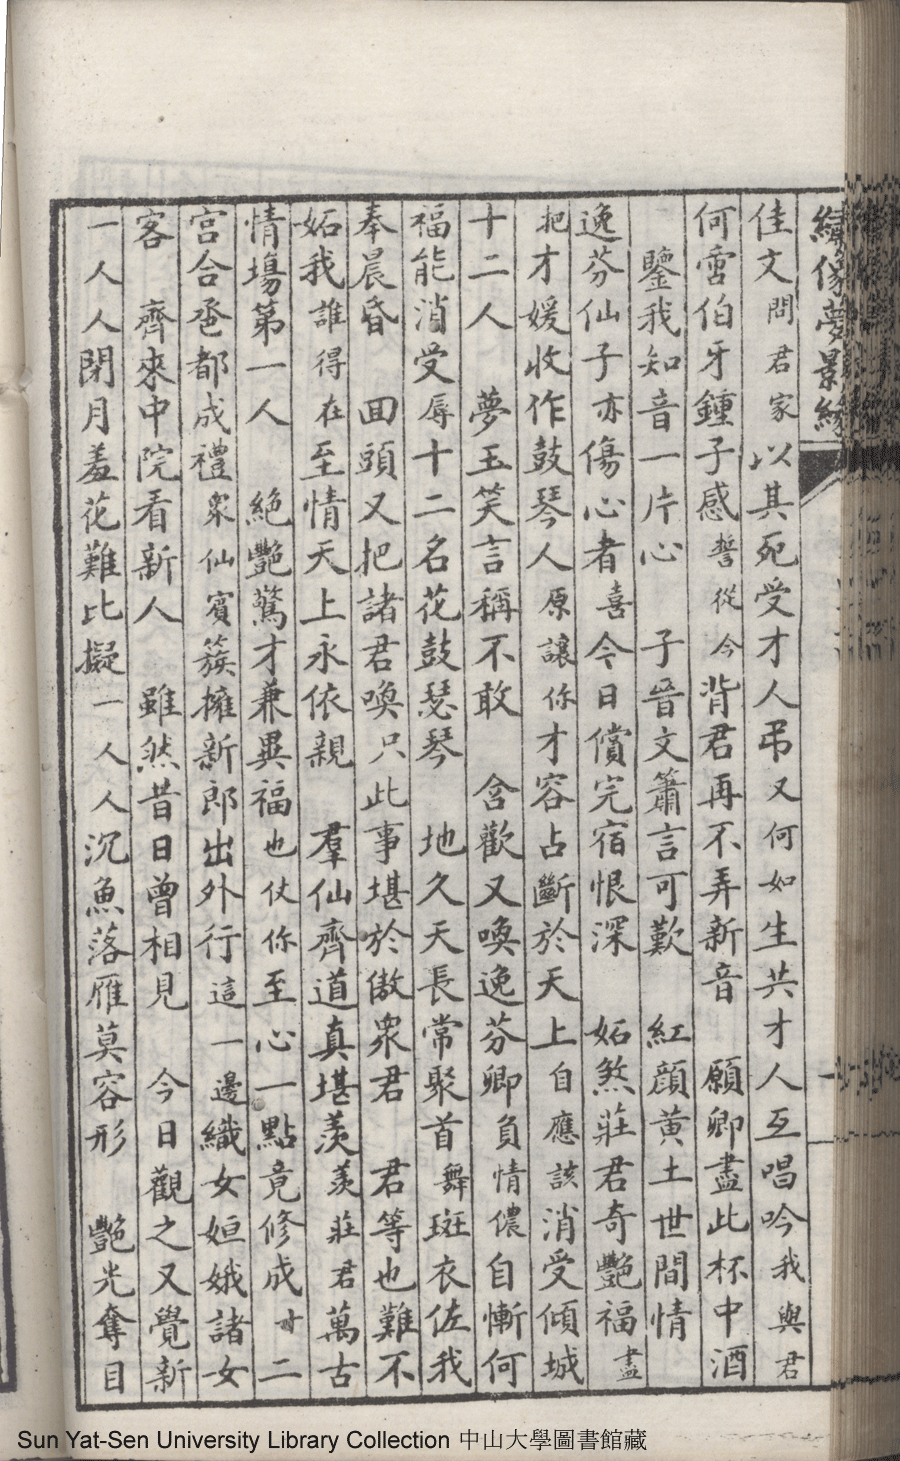 繡像夢影緣
佳文問君家以其死受才人弔又何如生共才人互唱吟我與君
何啻伯牙鍾子感誓從今背君再不弄新音　願卿盡此杯中酒
鑒我知音一片心　子晉文簫言可歎　紅顔黄土世間情
逸芬仙子亦傷心者喜今日償完宿恨深　妬煞莊君奇艷福盡
把才媛收作鼓琴人原讓你才容占斷於天上自應該消受傾城
十二人　夢玉笑言稱不敢　含歡又喚逸芬卿負情儂自慚何
福能消受辱十二名花鼓瑟琴　地久天長常聚首舞斑衣佐我
奉晨昏　回頭又把諸君喚只此事堪於傲衆君　君等也難不
妬我誰得在至情天上永依親　羣仙齊道真堪羡羡莊君萬古
情塲第一人　絶艷驚才兼異福也仗你至心一點竟修成　十二
宮合卺都成禮衆仙賓簇擁新郎出外行這一邊織女姮娥諸女
客　齊來中院看新人　雖然昔日曾相見　今日觀之又覺新
一人人閉月羞花難比擬一人人沉魚落雁莫容形　艷光奪目
Sun Yat-Sen University Library Collection 中山大學圖書館藏